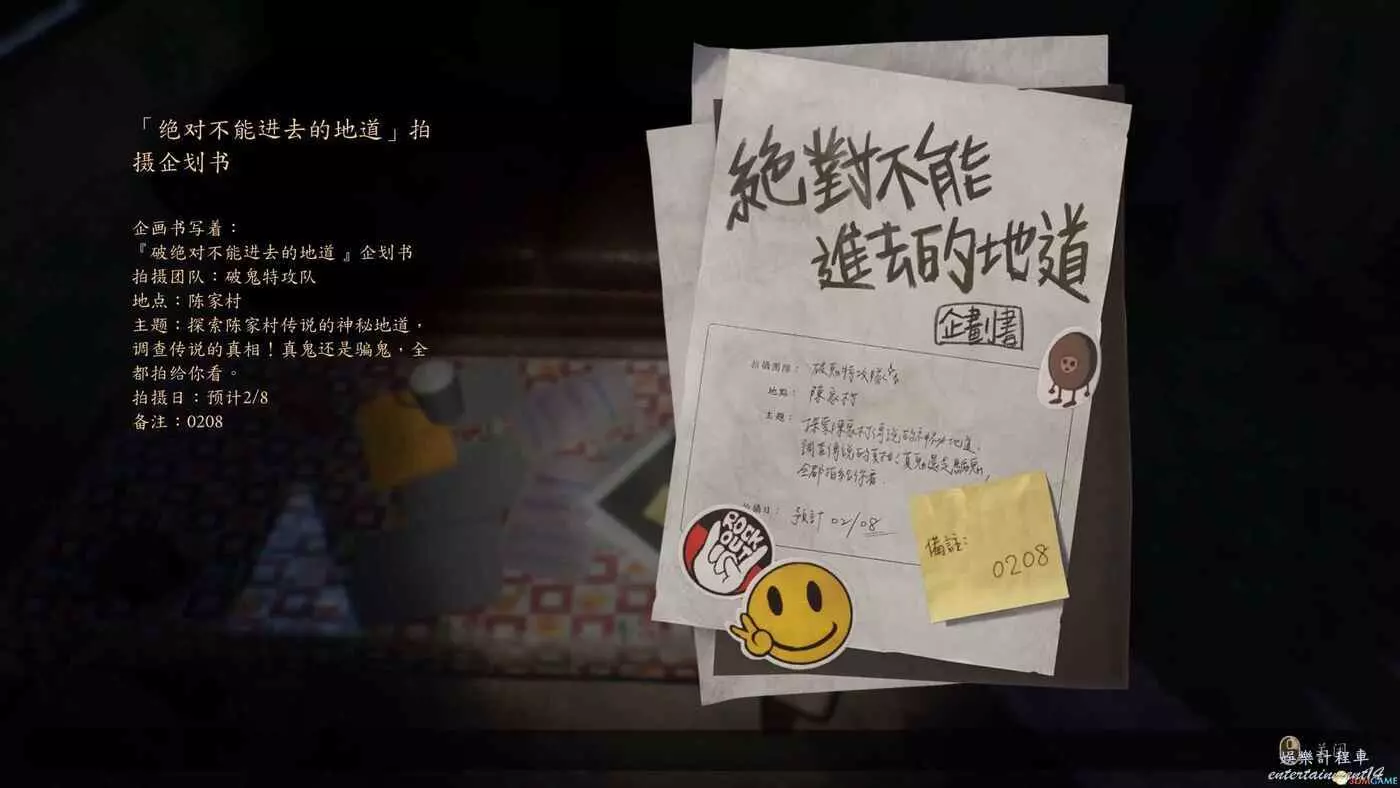 「绝对不能进去的地道」拍
摄企划书
企画书写着：
『破绝对不能进去的地道 』企划书
拍摄团队：破鬼特攻队
地点：陈家村
主题：探索陈家村传说的神秘地道，
调查传说的真相！真鬼还是骗鬼，全
都拍给你看。
拍摄日：预计2/8
备注：0208
絕對不能
進去的地道
企畫書
拍攝團隊： 破鬼特攻隊
地點： 陳家村
主題： 探索陳家村傳說的神秘地道，
調查傳說的真相！真鬼還是騙鬼，
全都拍給你看。
拍攝日： 預計 02/08
備註：
0208
ROCK
OUT!
关闭
娛樂計程車
entertainment14
3DMGAME